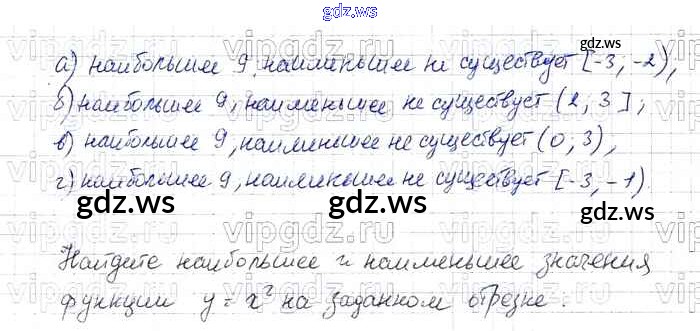 gdz.ws
а) наибольшее 9, наименьшее не существует [-3, -2),
б) наибольшее 9, наименьшее не существует (2, 3];
в) наибольшее 9, наименьшее не существует (0, 3),
г) наибольшее 9, наименьшее не существует [-3, -1).
gdz.ws gdz.ws
Найдите наибольшее и наименьшее значения
функции y = x² на заданном отрезке:
gdz.ws gdz.ws